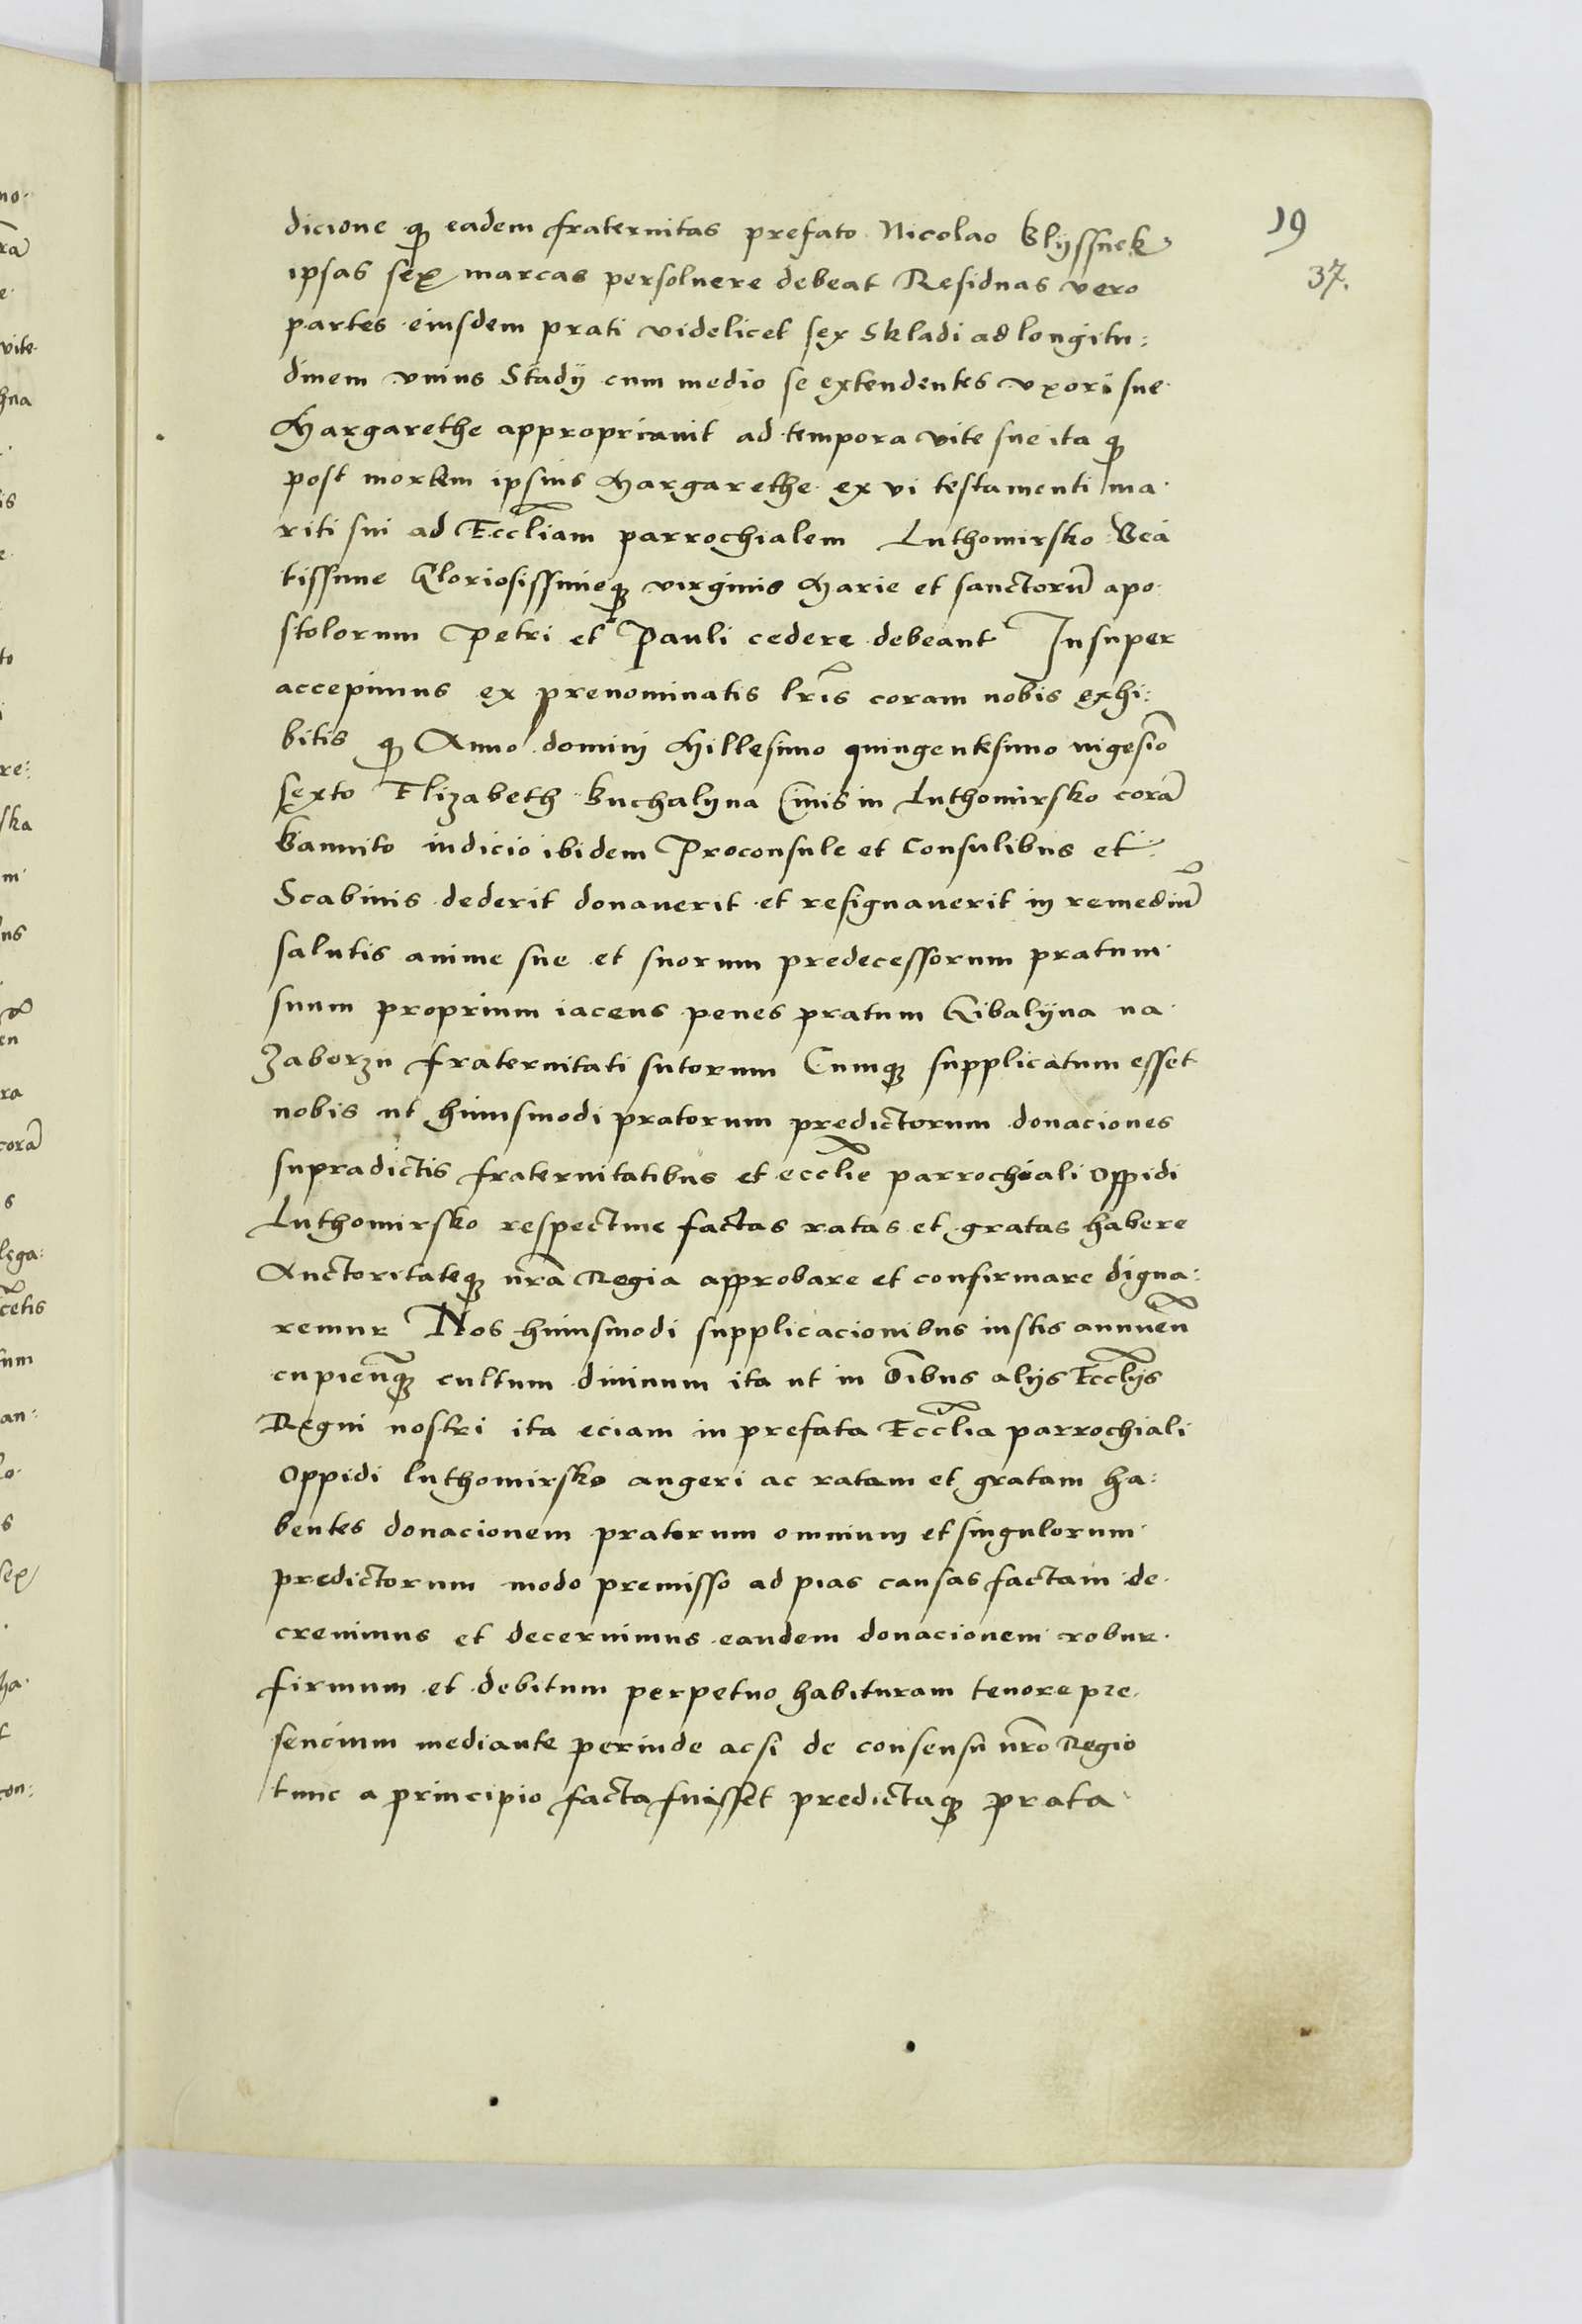 19
37.
dicione qȝ eadem fraternitas prefato Nicolao Klyssnek
ipsas sex marcas persoluere debeat Residuas vero
partes eiusdem prati videlicet sex Skladi ad longitu:
dinem vnius Stadij cum medio se extendentes vxori sue
Margarethe appropriauit ad tempora vite sue ita qȝ
post mortem ipsius Margarethe ex vi testamenti ma
riti sui ad Eccl̃iam parrochialem Luthomirsko Bea
tissime Gloriosissimeqȝ virginis Marie et sanctorũ apo
stolorum Petri et Pauli cedere debeant Insuper
accepimus ex prenominatis lr̃is coram nobis exhi:
bitis qȝ Anno domini Millesimo quingentesimo vigesiõ
sexto Elizabeth Kuchalyna Ciuis in Luthomirsko corã
bannito iudicio ibidem Proconsule et Consulibus et
Scabinis dederit donauerit et resignauerit in remediũ
salutis anime sue et suorum predecessorum pratum
suum proprium iacens penes pratum Gibalyna na
Zaborzu fraternitati sutorum Cumqȝ supplicatum esset
nobis ut huiusmodi pratorum predictorum donaciones
supradictis fraternitatibus et eccl̃ie parrochiali oppidi
Luthomirsko respectiue factas ratas et gratas habere
Auctoritateqȝ nr̃a Regia approbare et confirmare digna:
remur Nos huiusmodi supplicacionibus iustis annueñ
cupieñqȝ cultum diuinum ita ut in õibus alijs Eccl̃ijs
Regni nostri ita eciam in prefata Eccl̃ia parrochiali
Oppidi luthomirsko augeri ac ratam et gratam ha:
bentes donacionem pratorum omnium et singulorum
predictorum modo premisso ad pias causas factam de
creuimus et decernimus eandem donacionem robur
firmum et debitum perpetuo habituram tenore pre
sencium mediante perinde acsi de consensu nr̃o Regio
tunc a principio facta fuisset predictaqȝ prata